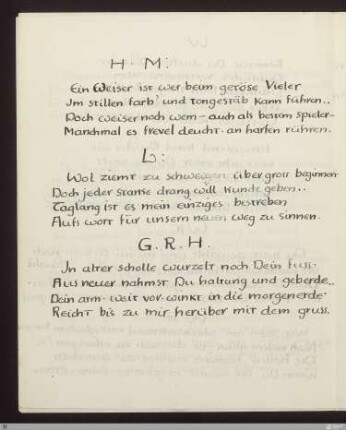 H. M:
Ein Weiser ist wer beim getöse Vieler
Im stillen farb' und tongestäb kann führen..
Doch weiser noch wem – auch als bestem spieler –
Manchmal es frevel deucht an harfen rühren.
L:
Wol ziemt zu schweigen über gross beginnen
Doch jeder starke drang will kunde geben..
Taglang ist es mein einziges bestreben
Aufs wort für unsern neuen weg zu sinnen.
G. R. H.
In alter scholle wurzelt noch Dein fuss.
Aus neuer nahmst Du haltung und geberde..
Dein arm weit vor-winkt in die morgenerde
Reicht bis zu mir herüber mit dem gruss.